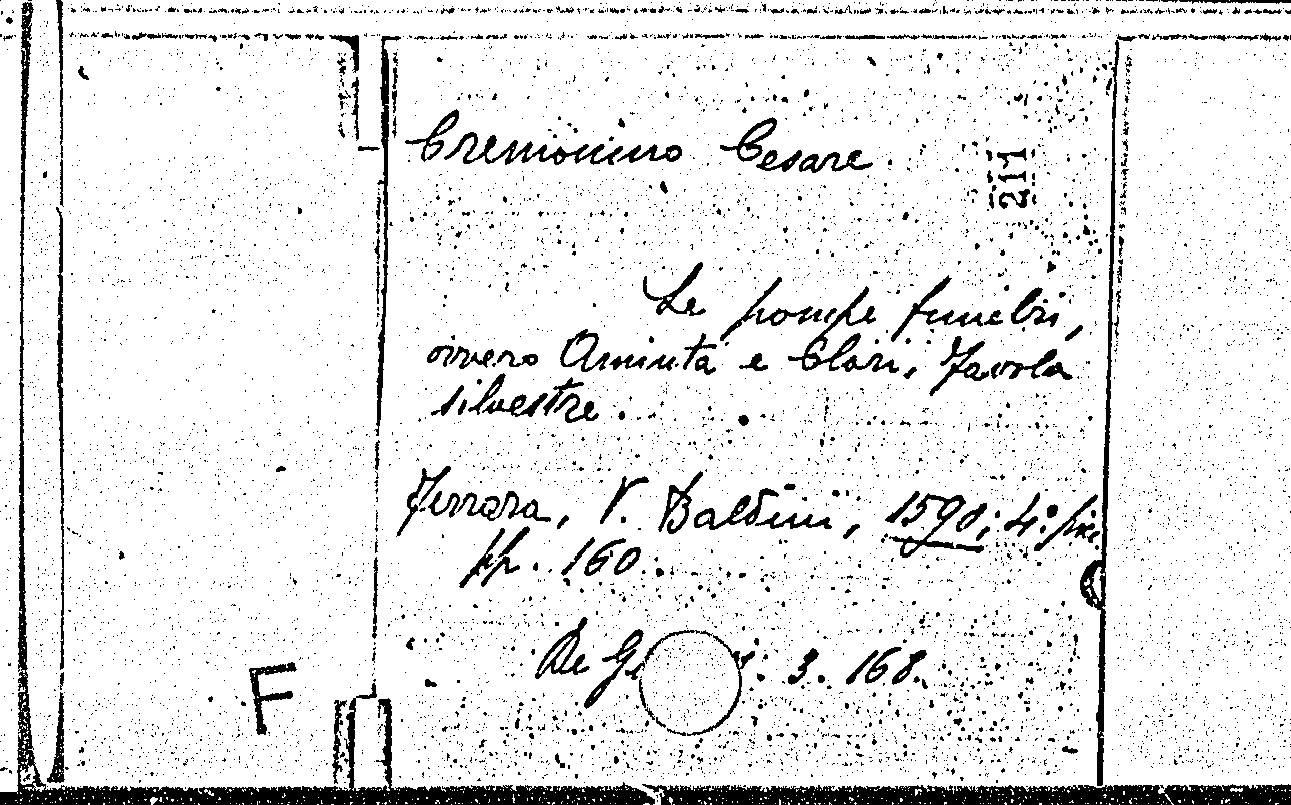 Cremonino Cesare.
211
Le pompe funebri,
ovvero Aminta e Clori, Favola
silvestre.
Ferrara, V. Baldini, 1590; 4.° picc.
pp. 160.
De 3. 168.
F